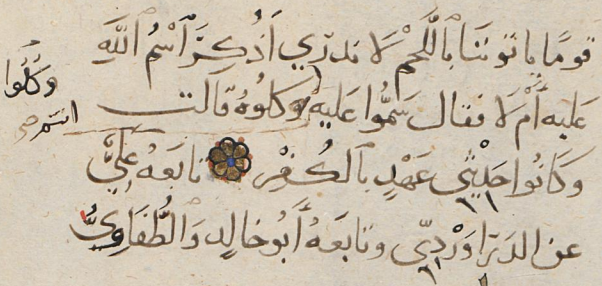 قومًا ياتوننا بٱللَّحْمِ لَا ندري أَذُكِرَ ٱسْمُ ٱللَّهِ
عَليه أَمْ لَا فقال سَمُّوا عَليه وكلوهُ قالت
وكَانُوا حَدِيثِي عَهْدٍ بِٱلكُفْرِ تابَعَهُ عَلِيٌّ
عن الدَرَاوَرْدِيِّ وتابَعَهُ أَبُو خالِدٍ وَٱلطُّفَاوِيُّ
وَكُلُوا